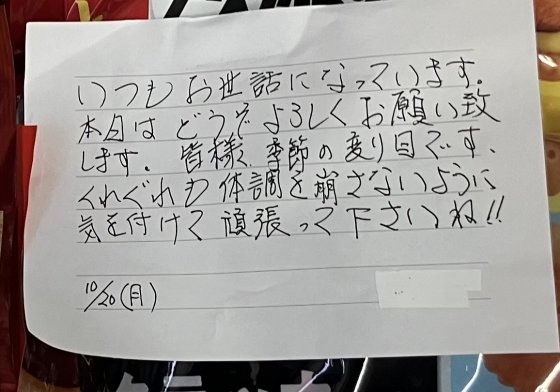 いつもお世話になっています。
本日はどうぞよろしくお願い致
します。皆様、季節の変り目です、
くれぐれも体調を崩さないように
気を付けて頑張って下さいね!!
10/20(月)